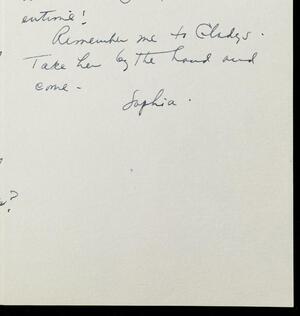 entirée!
Remember me to Gladys.
Take her by the hand and
come -
Sophia.
?